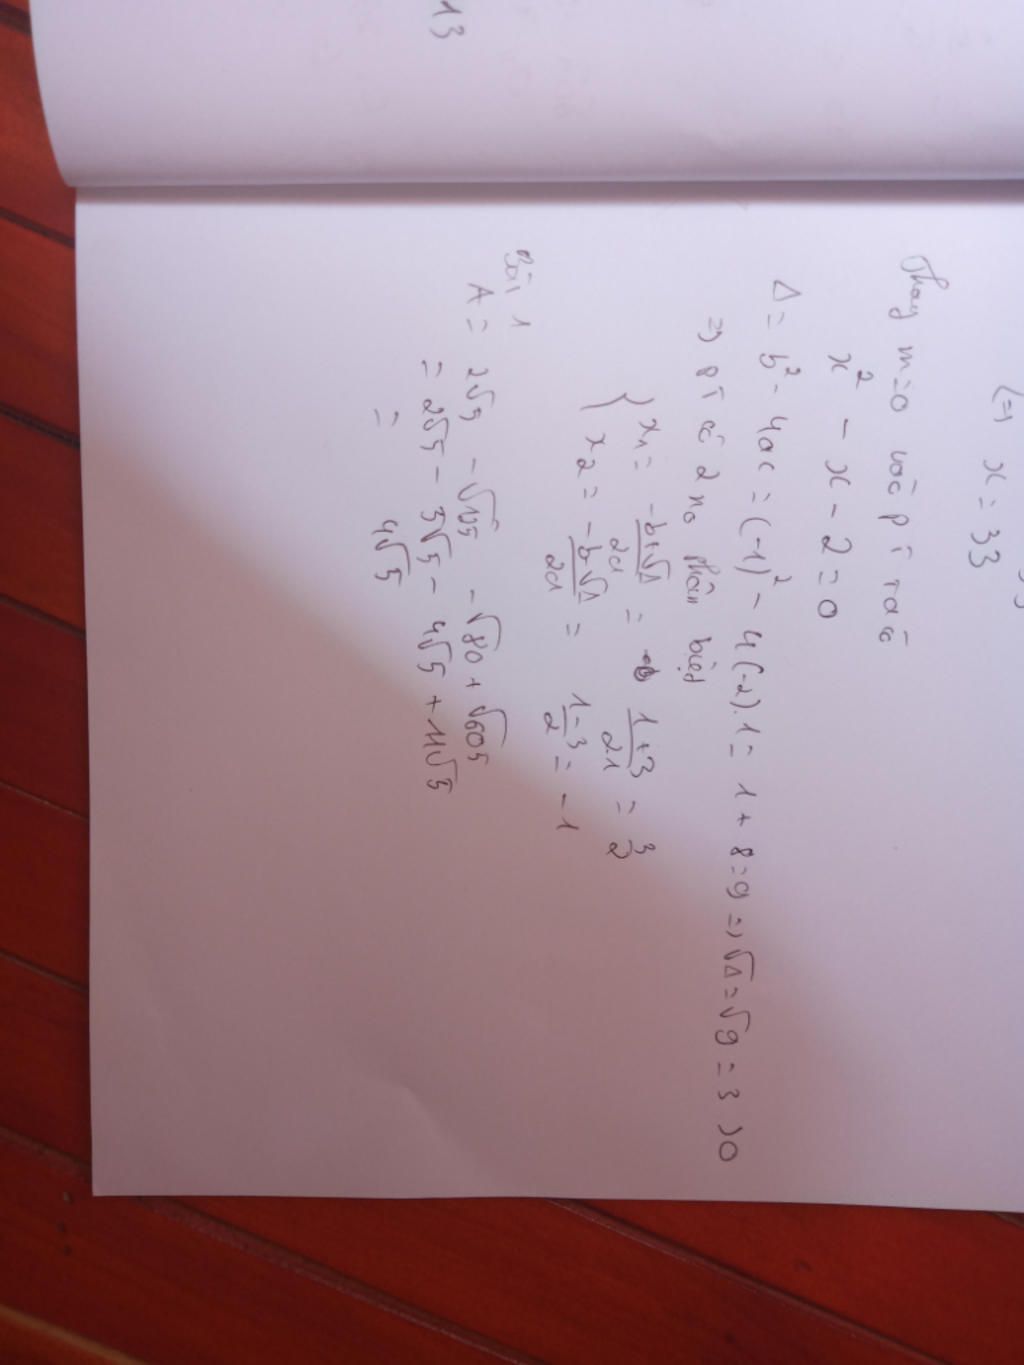 13
(=) x = 33
Thay m=0 vào PT ta có
x² - x - 2 = 0
Δ = b² - 4ac = (-1)² - 4(-2).1 = 1 + 8 = 9 => √Δ = √9 = 3 > 0
=> PT có 2 n₀ phân biệt
{ x₁ = (-b+√Δ)/2a = (1+3)/21 = 3/2
x₂ = (-b√Δ)/2a = (1-3)/2 = -1
Bài 1
A = 2√5 - √125 - √80 + √605
= 2√5 - 5√5 - 4√5 + 11√5
= 4√5